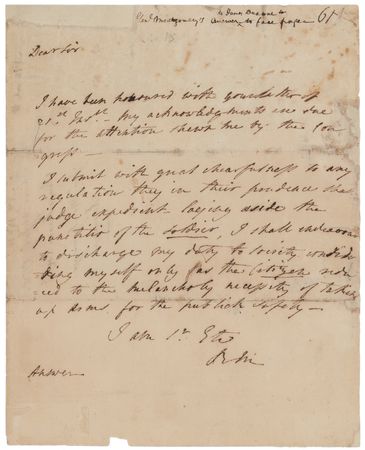 Genl Montgomery's Answer to James Duane to face page 61
Dear Sir
I have been honoured with your letter of
21.st Inst. — My acknowledgments are due
for the attention shewn me by the Con
gress —
I submit with great chearfulness to any
regulation they in their prudence shall
judge expedient laying aside the
punctilio of the Soldier, I shall endeavour
to discharge my duty to society consid
ering myself only as the Citizen redu
ced to the melancholy necessity of taking
up arms for the publick safety —
I am Sr. &tc
R M
Answer